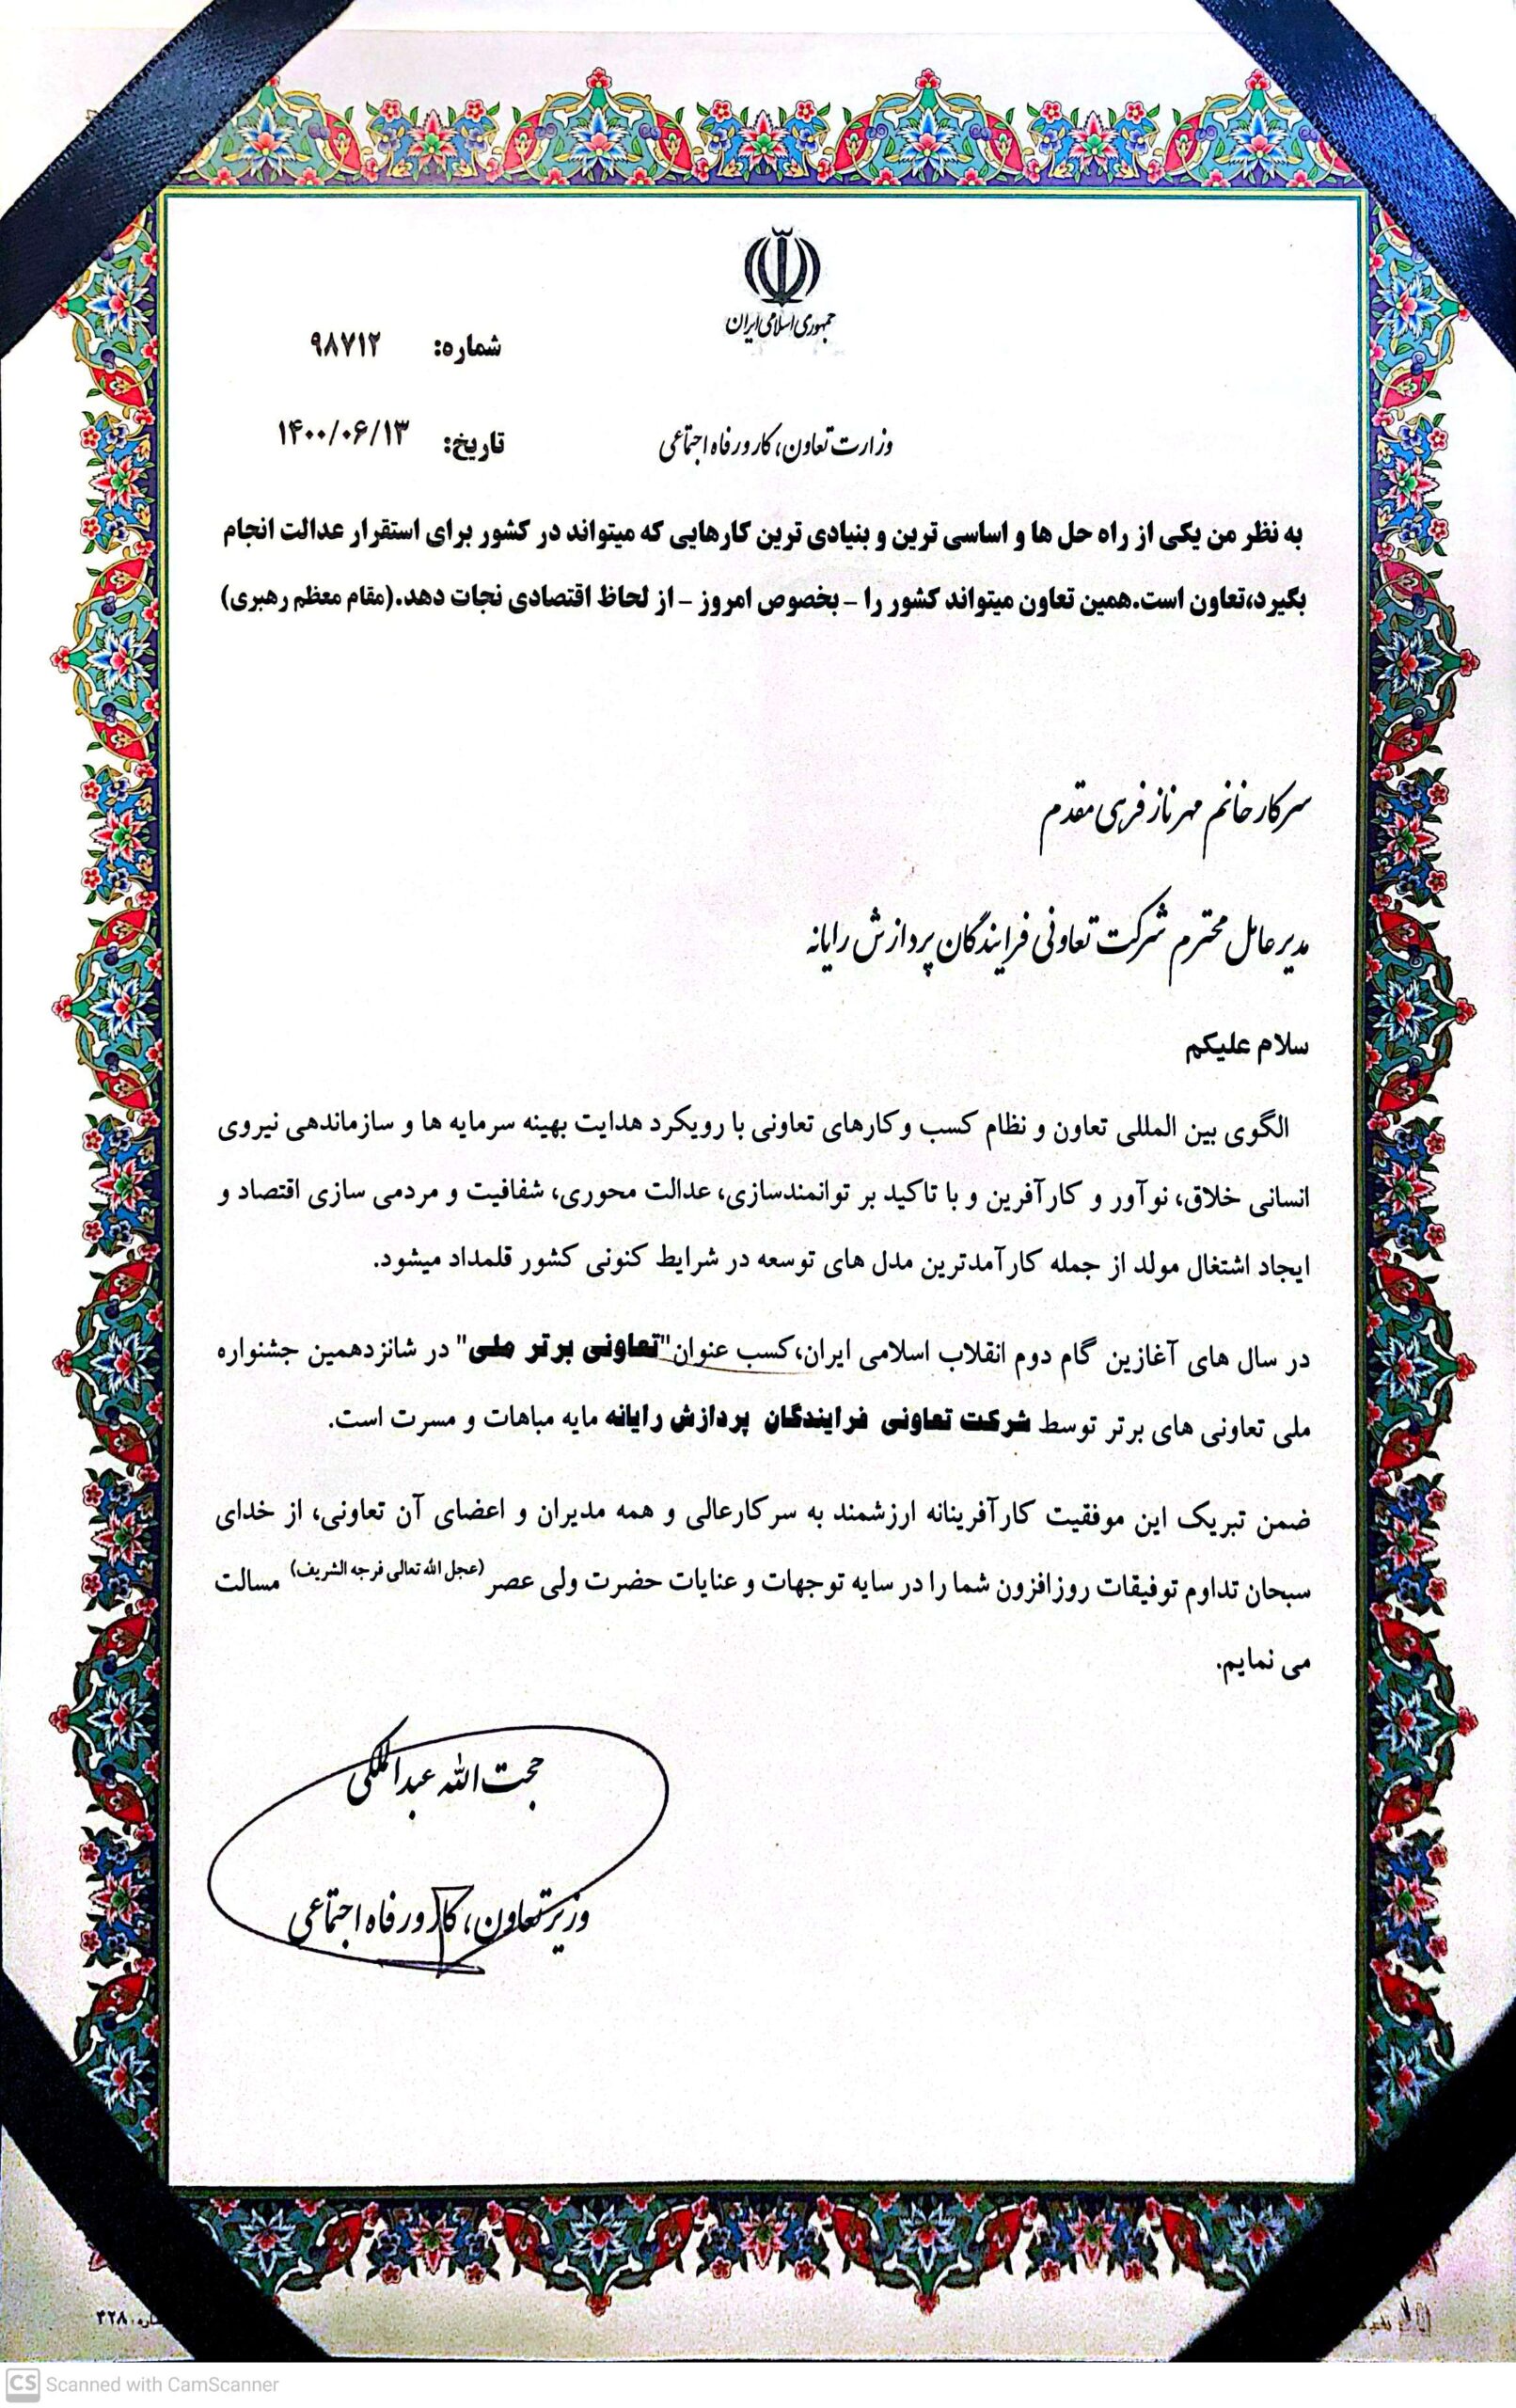 جمهوری اسلامی ایران
شماره: ۹۸۷۱۲
وزارت تعاون، کار و رفاه اجتماعی
تاریخ: ۱۴۰۰/۰۶/۱۳
به نظر من یکی از راه حل ها و اساسی ترین و بنیادی ترین کارهایی که میتواند در کشور برای استقرار عدالت انجام
بگیرد،تعاون است.همین تعاون میتواند کشور را – بخصوص امروز – از لحاظ اقتصادی نجات دهد.(مقام معظم رهبری)
سرکار خانم مهرناز فرهی مقدم
مدیرعامل محترم شرکت تعاونی فرایندگان پردازش رایانه
سلام علیکم
الگوی بین المللی تعاون و نظام کسب و کارهای تعاونی با رویکرد هدایت بهینه سرمایه ها و سازماندهی نیروی
انسانی خلاق، نوآور و کارآفرین و با تاکید بر توانمندسازی، عدالت محوری، شفافیت و مردمی سازی اقتصاد و
ایجاد اشتغال مولد از جمله کارآمدترین مدل های توسعه در شرایط کنونی کشور قلمداد میشود.
در سال های آغازین گام دوم انقلاب اسلامی ایران،کسب عنوان"تعاونی برتر ملی" در شانزدهمین جشنواره
ملی تعاونی های برتر توسط شرکت تعاونی فرایندگان پردازش رایانه مایه مباهات و مسرت است.
ضمن تبریک این موفقیت کارآفرینانه ارزشمند به سرکارعالی و همه مدیران و اعضای آن تعاونی، از خدای
سبحان تداوم توفیقات روزافزون شما را در سایه توجهات و عنایات حضرت ولی عصر (عجل الله تعالی فرجه الشریف) مسالت
می نمایم.
حجت الله عبدالملکی
وزیر تعاون، کار و رفاه اجتماعی
۴۲۸
CS Scanned with CamScanner